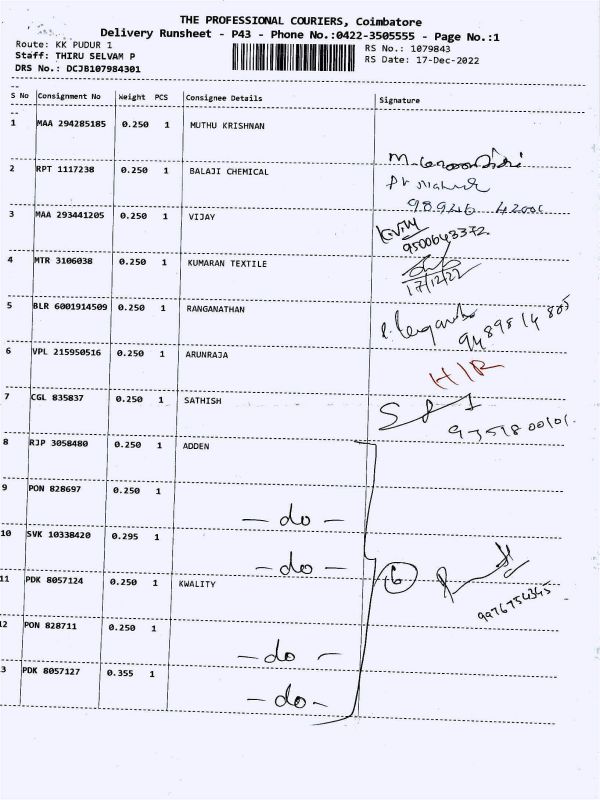 THE PROFESSIONAL COURIERS, Coimbatore
Delivery Runsheet - P43 - Phone No.:0422-3505555 - Page No.:1
Route: KK PUDUR 1
RS No.: 1079843
Staff: THIRU SELVAM P
RS Date: 17-Dec-2022
DRS No.: DCJB107984301
S No Consignment No Weight PCS Consignee Details Signature
1 MAA 294285185 0.250 1 MUTHU KRISHNAN
2 RPT 1117238 0.250 1 BALAJI CHEMICAL
3 MAA 293441205 0.250 1 VIJAY
9500643372
4 MTR 3106038 0.250 1 KUMARAN TEXTILE
17/12/22
5 BLR 6001914509 0.250 1 RANGANATHAN
9489814805
6 VPL 215950516 0.250 1 ARUNRAJA
H/R
7 CGL 835837 0.250 1 SATHISH
8 RJP 3058480 0.250 1 ADDEN
9 PON 828697 0.250 1
- do -
10 SVK 10338420 0.295 1
- do -
11 PDK 8057124 0.250 1 KWALITY
6
9976754345
12 PON 828711 0.250 1
- do -
3 PDK 8057127 0.355 1
- do -